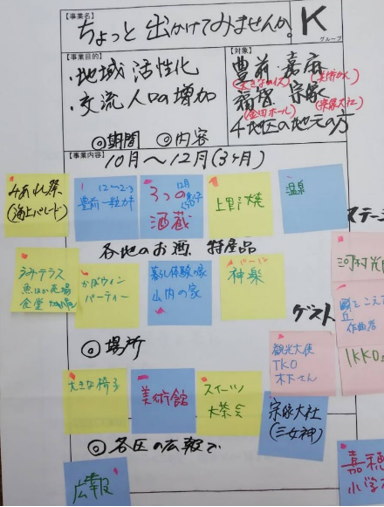 【事業名】
ちょっと出かけてみませんか。
K
グループ
【事業目的】
・地域活性化
・交流人口の増加
【対象】
豊前・嘉麻
福智 宗像
(金田ホール) (宗像大社)
4地区の地元の方
◎期間 ◎内容
【事業内容】
10月〜12月(3ヶ月)
みあれ祭
(海上パレード)
12〜2月
豊前一粒カキ
12月
3つの
酒蔵
上野焼
温泉
各地のお酒 特産品
うみテラス
魚市場
食堂
かぼウィン
パーティー
暮し体験の家
山内の家
神楽
ゲスト
◎場所
大きな椅子
美術館
スイーツ
大茶会
観光大使
TKO
木下さん
宗像大社
(三女神)
IKKO
◎各区の広報で
広報
嘉穂
小学